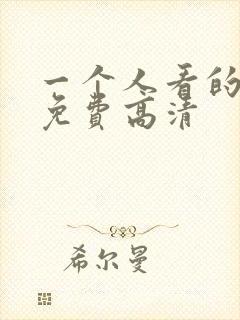 一个人看的
免费高清
希尔曼